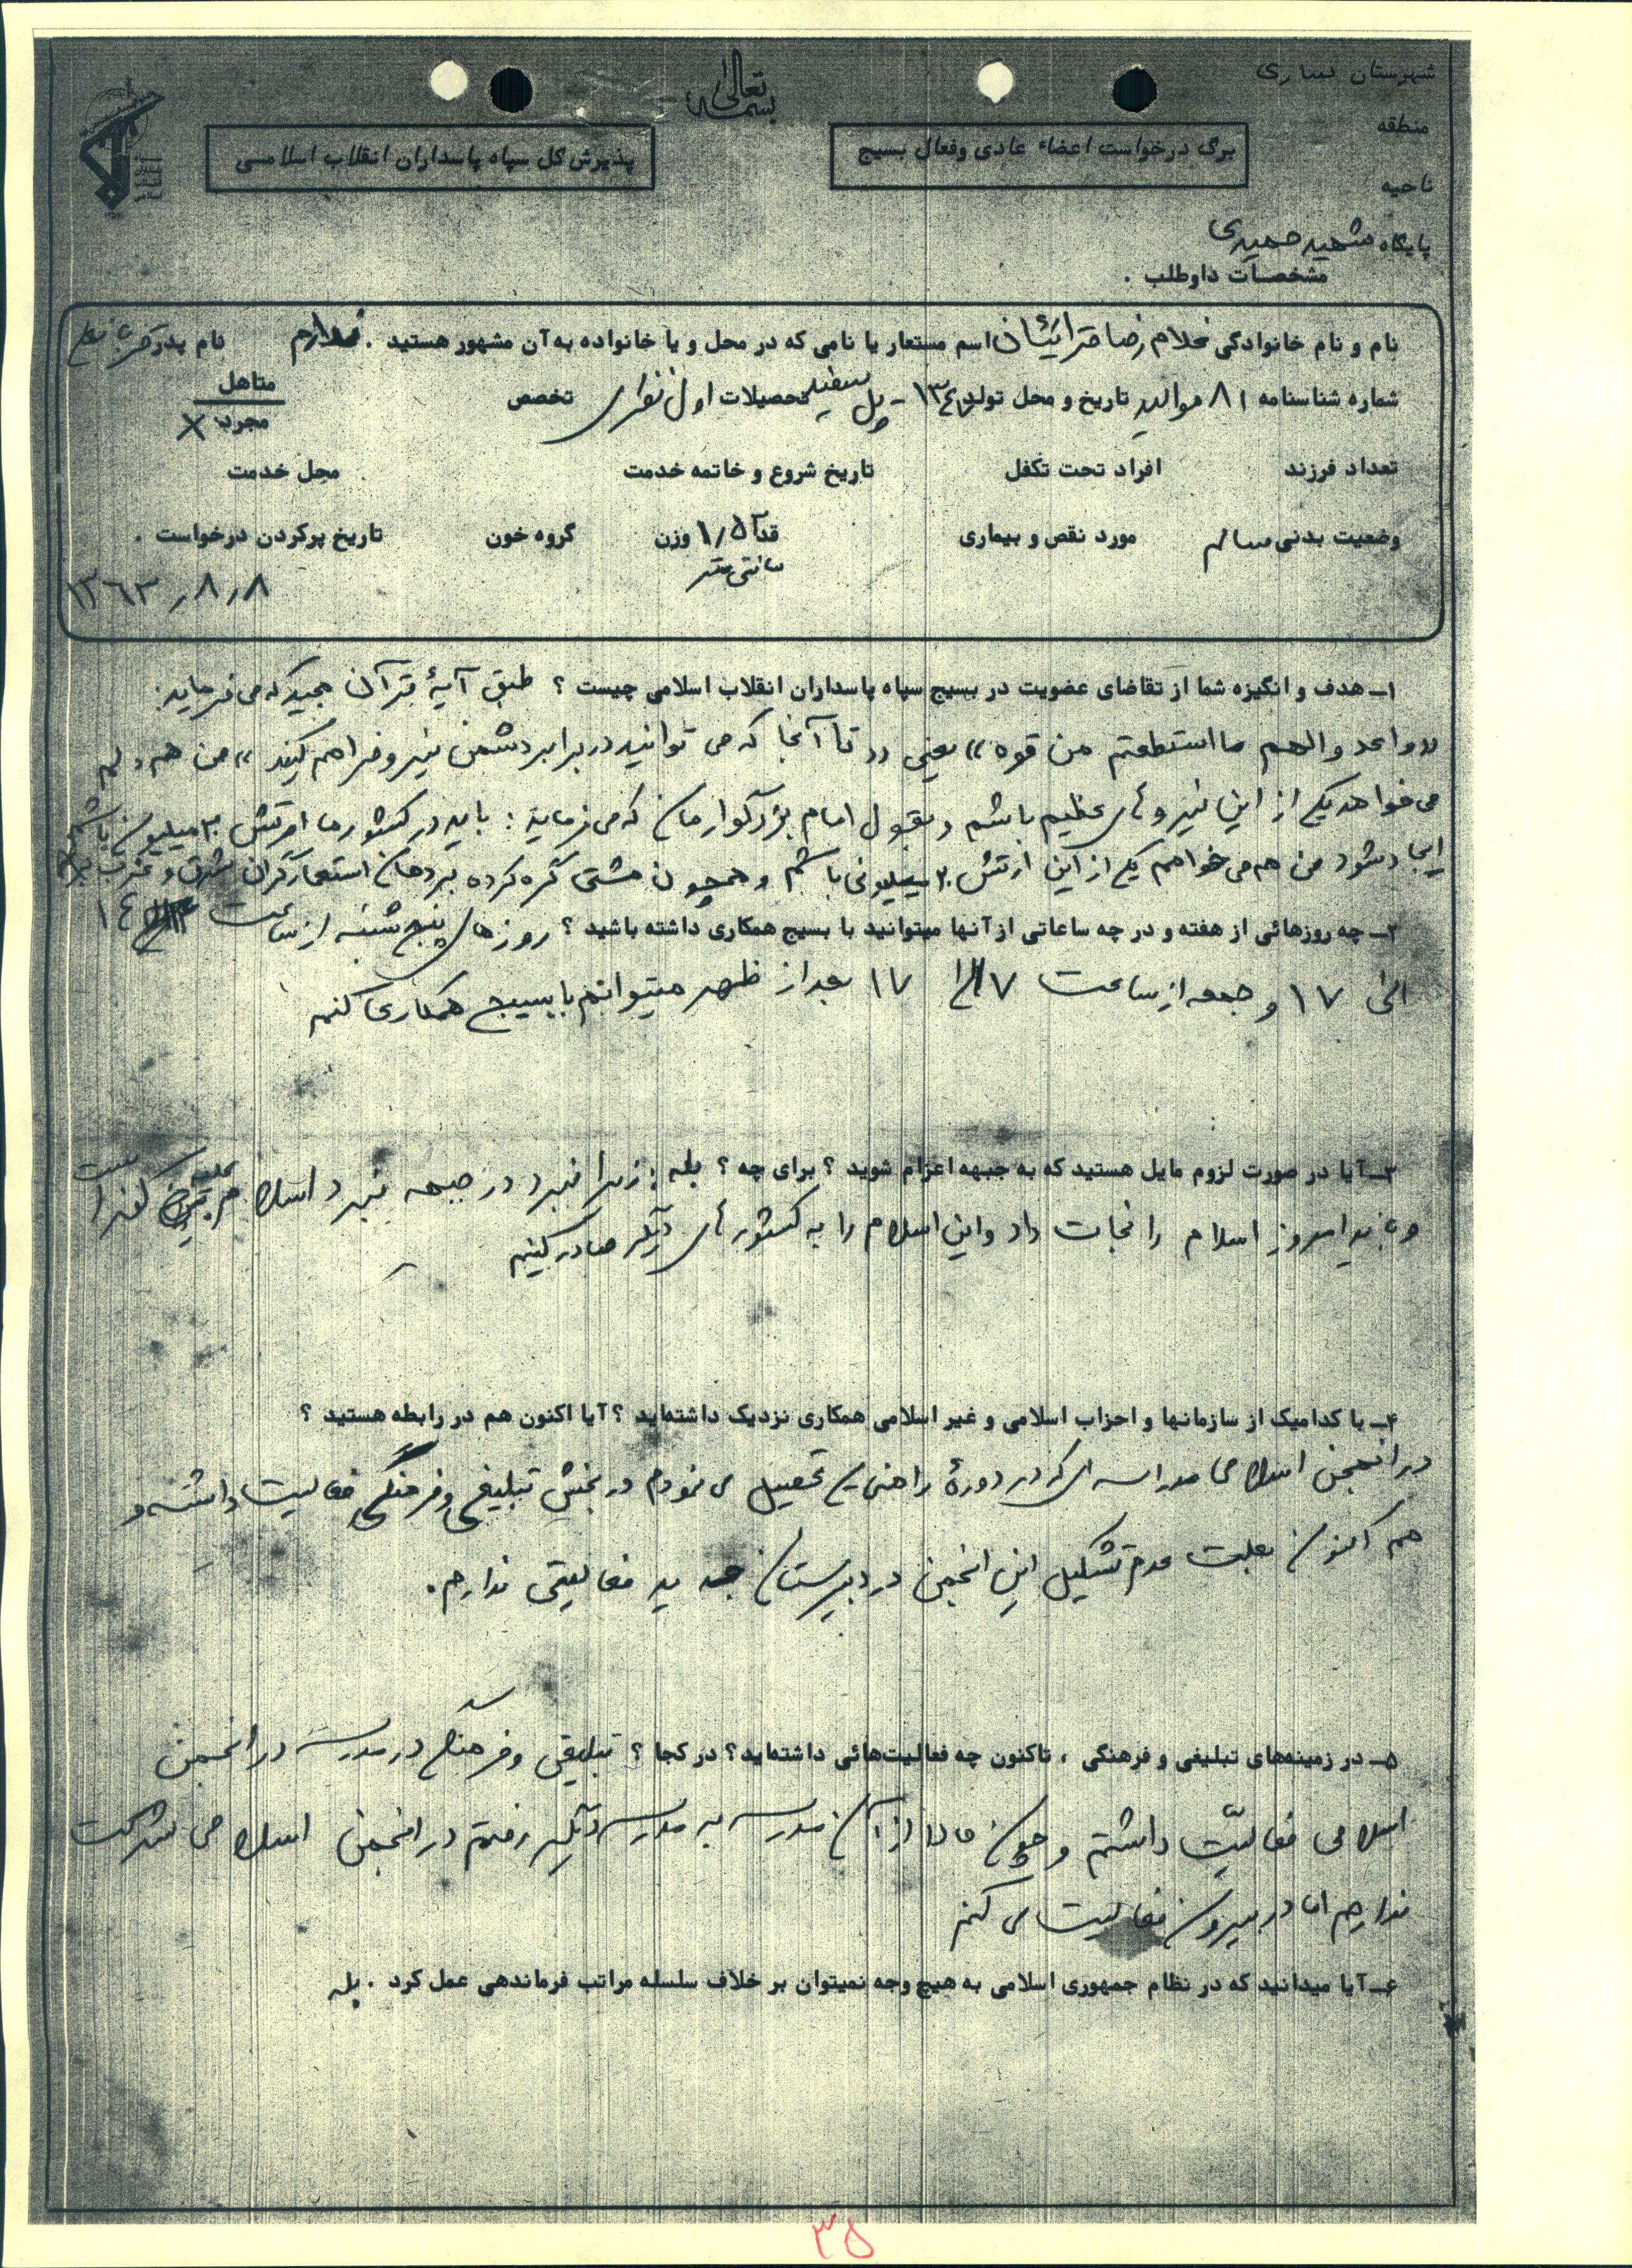 بسمه تعالی
شهرستان ساری
منطقه
برگ درخواست اعضاء عادی وفعال بسیج
پذیرش کل سپاه پاسداران انقلاب اسلامی
ناحیه
پایگاه شهید حمیدی
مشخصات داوطلب .
نام و نام خانوادگی غلام رضا اسم مستعار یا نامی که در محل و یا خانواده به آن مشهور هستید . ندارم نام پدر
شماره شناسنامه ۸۱ تاریخ و محل تولد پل سفید تحصیلات اول نظری تخصص متاهل
مجرد X
تعداد فرزند افراد تحت تکفل تاریخ شروع و خاتمه خدمت محل خدمت
وضعیت بدنی سالم مورد نقص و بیماری قد وزن گروه خون تاریخ پرکردن درخواست .
سانتی متر
۱۳۶۳٫۸٫۸
۱ـ هدف و انگیزه شما از تقاضای عضویت در بسیج سپاه پاسداران انقلاب اسلامی چیست ؟ طبق آیهٔ قرآن مجید که می فرماید:
«واعد والهم مااستطعتم من قوه» یعنی «تا آنجا که می توانید در برابر دشمن نیرو فراهم کنید» من هم دلم
می خواهد یکی از این نیروهای عظیم باشم و بقول امام بزرگوارمان که می فرماید: باید در کشور ما ارتش ۲۰ میلیونی باشم
ایجاد شود من هم می خواهم یکی از این ارتش ۲۰ میلیونی باشم و همچون مشتی گره کرده بر دهان استعمارگران شرق و غرب
۲ـ چه روزهائی از هفته و در چه ساعاتی از آنها میتوانید با بسیج همکاری داشته باشید ؟ روزهای پنج شنبه از ساعت ۱۴
الی ۱۷ و جمعه از ساعت ۷ الی ۱۷ بعد از ظهر میتوانم با بسیج همکاری کنم
۳ـ آیا در صورت لزوم مایل هستید که به جبهه اعزام شوید ؟ برای چه ؟ بله : زیرا نبرد در جبهه نبرد اسلام کفر است
و باید امروز اسلام را نجات داد و این اسلام را به کشورهای دیگر صادر کنیم
۴ـ با کدامیک از سازمانها و احزاب اسلامی و غیر اسلامی همکاری نزدیک داشته‌اید ؟ آیا اکنون هم در رابطه هستید ؟
در انجمن اسلامی مدرسه ای که در دورهٔ راهنمایی تحصیل می نمودم در بخش تبلیغی و فرهنگی فعالیت داشته و
هم اکنون بعلت عدم تشکیل این انجمن در دبیرستان جدید فعالیتی ندارم.
۵ـ در زمینه‌های تبلیغی و فرهنگی ، تاکنون چه فعالیت‌هائی داشته‌اید؟ در کجا ؟ تبلیغی و فرهنگی در مدرسه در انجمن
اسلامی فعالیّت داشتم و چون حالا از آن مدرسه به مدرسه دیگر رفتم در انجمن اسلامی شرکت
ندارم اما در بیرون فعالیت می کنم
۶ـ آیا میدانید که در نظام جمهوری اسلامی به هیچ وجه نمیتوان بر خلاف سلسله مراتب فرماندهی عمل کرد . بله
۳۵